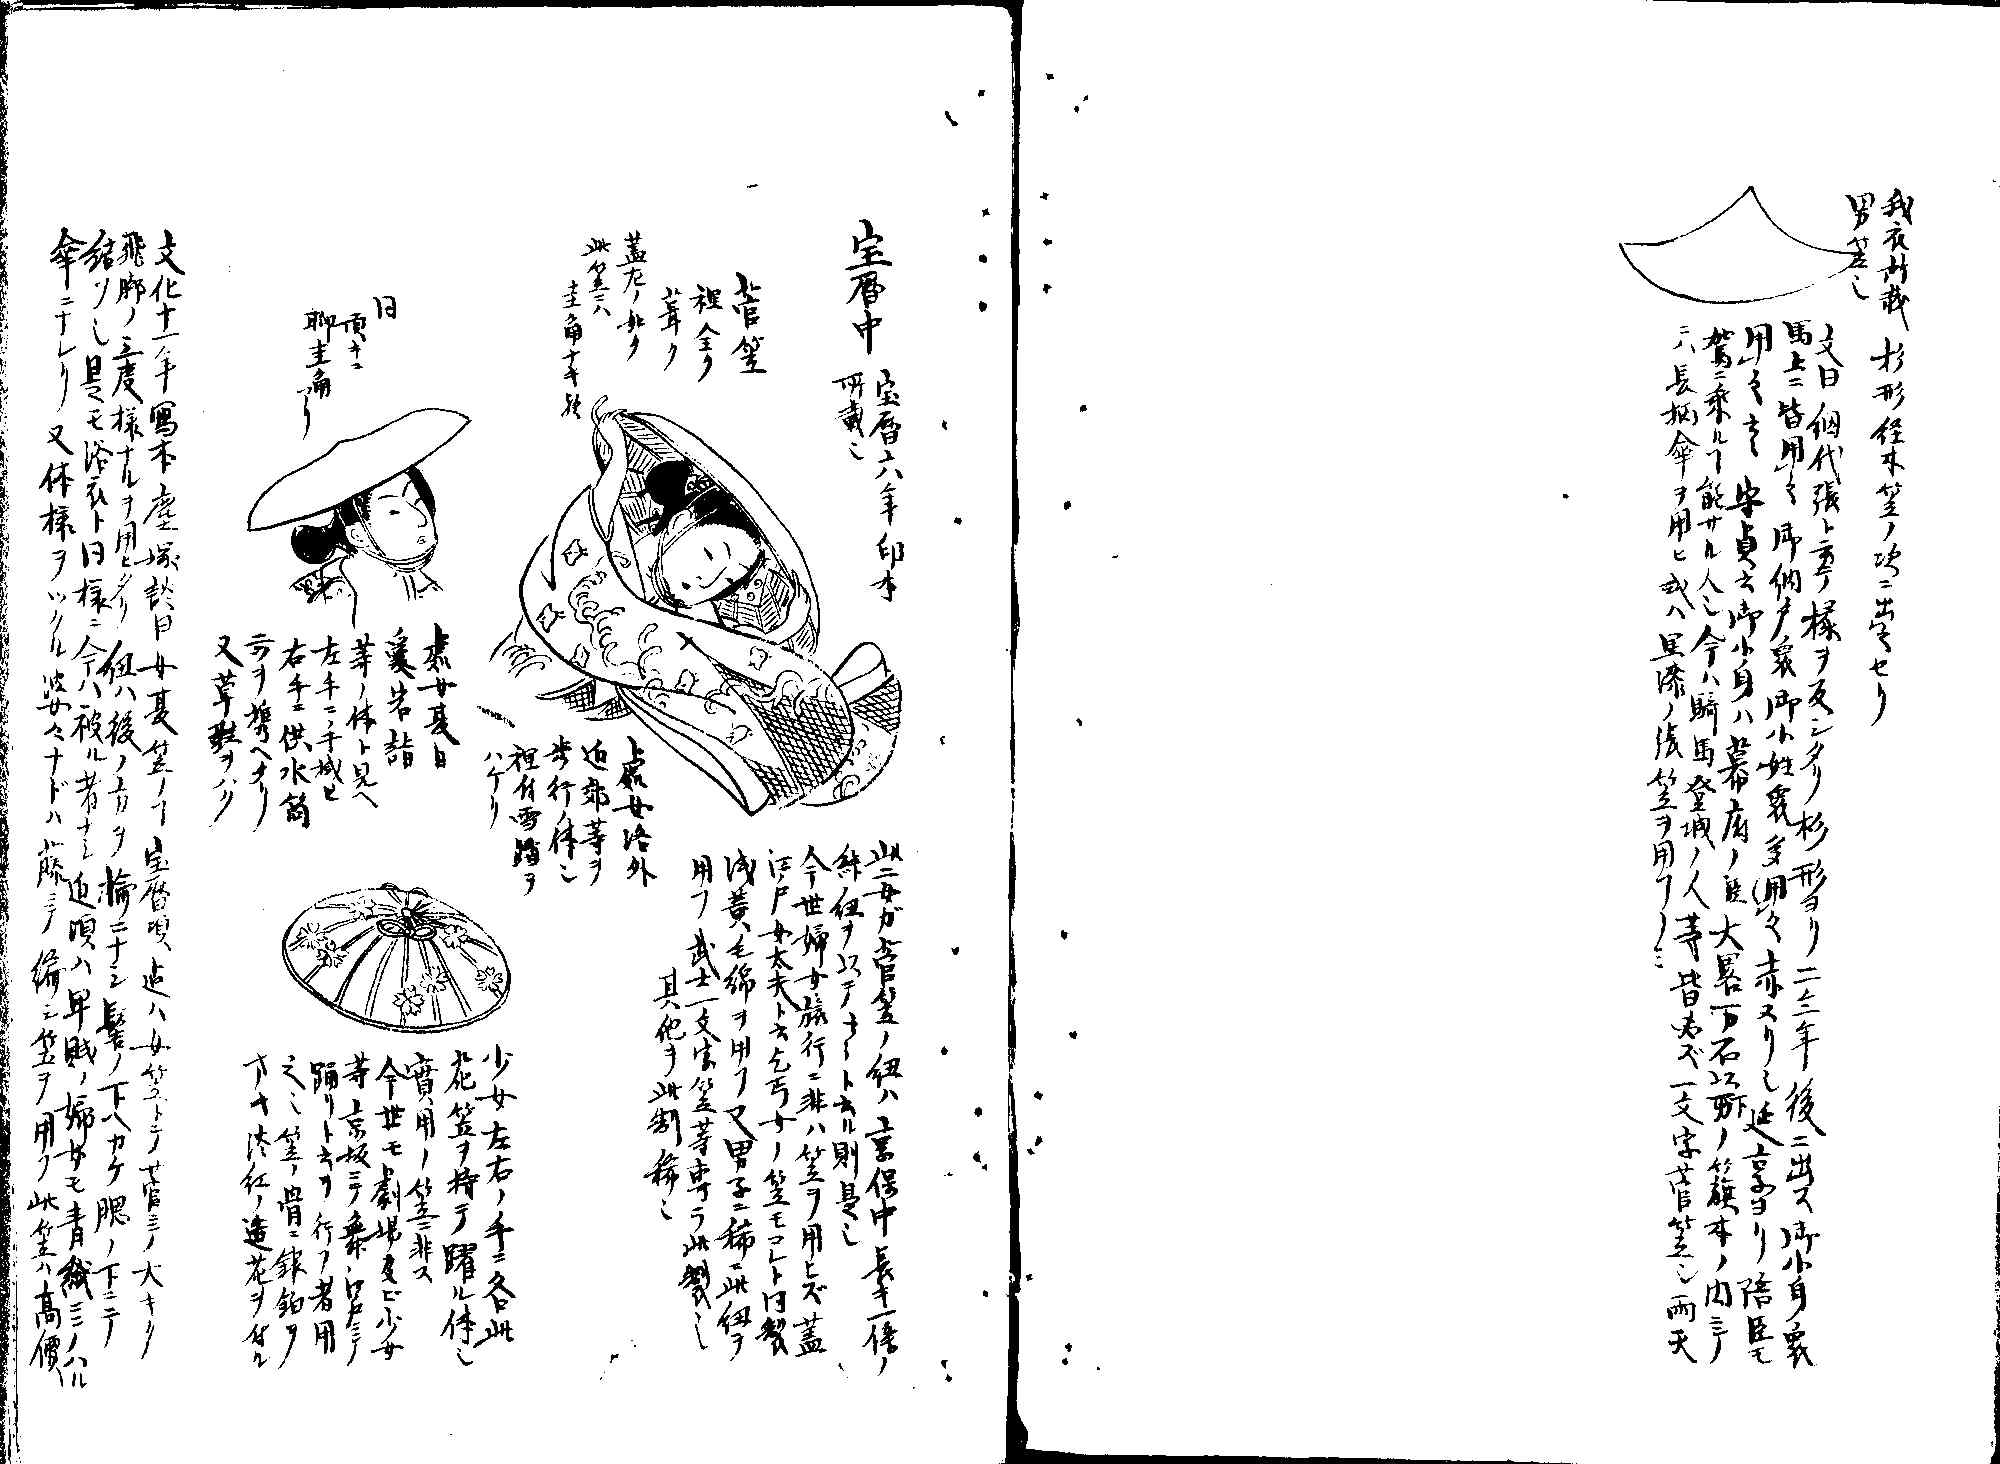 我衣所載 杉形経木笠ノ次ニ出之セリ
男笠也
又曰 網代張ト云テ様ヲ反シタリ 杉形ヨリ二三年後ニ出ス 御小身衆
馬上ニ皆用之 御納戸衆御小姓衆多ク用之 赤スリ也 延享ヨリ陪臣モ
用之 守貞云 御小身ハ幕府ノ臣大畧一万石以下ノ籏本ノ内ニテ
駕ニ乗ルコト能ザル人也 今ハ騎馬登城ノ人等皆必ズ一文字菅笠也 雨天
ニハ長柄傘ヲ用ヒ或ハ黒漆ノ張笠ヲ用フノミ
宝暦中 宝暦六年印本
所載也
菅笠
裡全ク
葺ク
蓋左ノ如ク
此笠ニハ
圭角ナキ歟
同
頂キニ
聊圭角アリ
処女洛外
近郊等ヲ
歩行ノ体也
裡付雪踏ヲ
ハケリ
処女夏日
愛宕詣
等ノ体ト見ヘ
左手ニ
右手ニ供水筒
ヲ携ヘタリ
又草鞋ヲハク
此二女ガ菅笠ノ紐ハ 享保中長キ一條ノ
絲紐ヲ以テ ト云ル則是也
今世婦女旅行ニ非ハ笠ヲ用ヒズ 蓋
江戸女太夫ト云乞丐女ノ笠モコレト同製
浅黄毛綿ヲ用フ 又男子ニ稀ニ此紐ヲ
用フ 武士一文字笠等専ラ此製也
其他ヲ此制稀也
少女左右ノ手ニ各此
花笠ヲ持テ躍ル体也
實用ノ笠ニ非ス
今世モ劇場及ビ少女
等ノ京坂ニテ舞江戸ニテ
踊リト云ヲ行フ者用
之也 笠ノ骨ニ銀鉑ヲ
淡紅ノ造花ヲ付ル
文化十一年寫本塵塚談曰 女夏笠ノコト 宝暦頃迠ハ女笠トテ菅ニテ大キク
飛脚ノ三度様ナルヲ用ヒタリ 紐ハ後ノ方ヲ輪ニナシ髷ノ下ヘカケ 腮ノ下ニテ
結ブ也 是モ浴衣ト同様ニ今ハ被ル者ナシ 近頃ハ卑賎ノ婦女モ青紙ニテハル
傘ニナレリ 又体様ヲツクル婆々ナドハ藤ニテ編シ笠ヲ用フ 此笠ハ高價